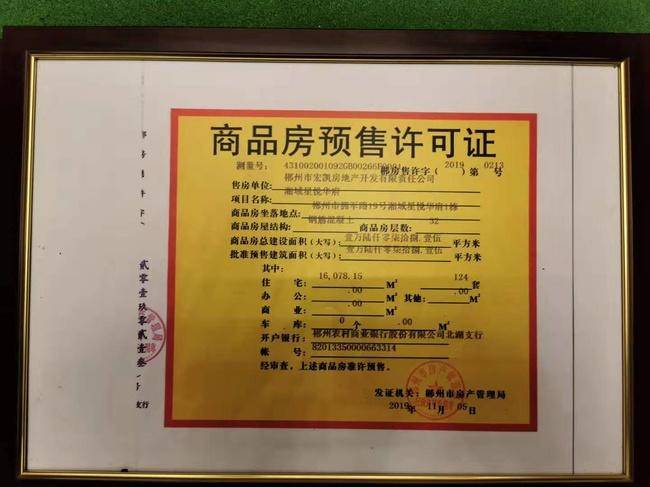 商品房预售许可证
测量号：431002001092GB00266F0001
郴房售许字（2019）第0213号
售房单位：郴州市宏凯房地产开发有限责任公司
项目名称：湘域星悦华府
商品房坐落地点：郴州市拥军路19号湘域星悦华府1栋
商品房屋结构：钢筋混凝土 商品房层数：32
商品房总建设面积(大写)：壹万陆仟零柒拾捌.壹伍 平方米
批准预售建筑面积(大写)：壹万陆仟零柒拾捌.壹伍 平方米
其中：
住 宅：16,078.15 M² 124 套
办 公：.00 M² 其他：.00 M²
商 业：.00 M²
车 库：0 个 .00 M²
开户银行：郴州农村商业银行股份有限公司北湖支行
帐 号：82013350000663314
经审查，上述商品房准许预售。
发证机关：郴州市房产管理局
2019年11月05日
贰零壹玖零贰壹叁
号
支行